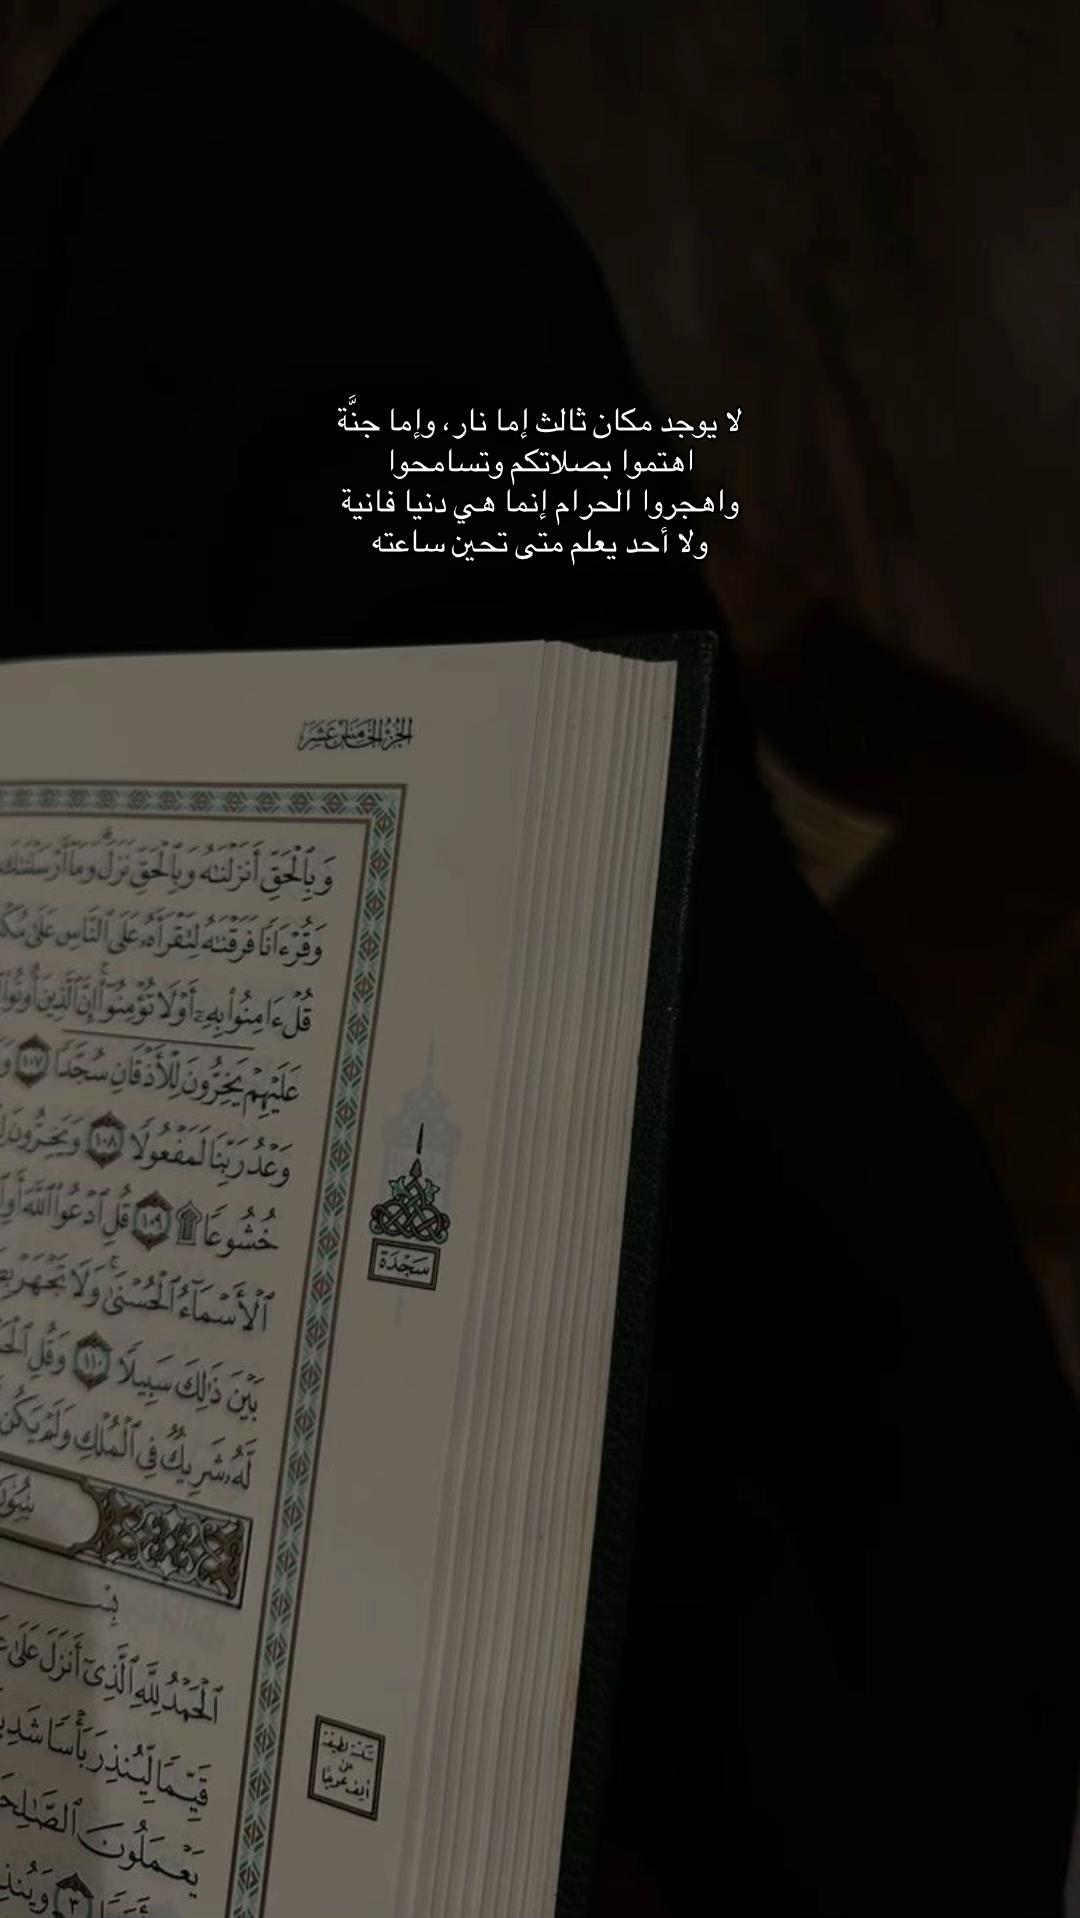 لا يوجد مكان ثالث إما نار، وإما جنَّة
اهتموا بصلاتكم وتسامحوا
واهجروا الحرام إنما هي دنيا فانية
ولا أحد يعلم متى تحين ساعته
الجزء الخامس عشر
وَبِٱلْحَقِّ أَنزَلْنَٰهُ وَبِٱلْحَقِّ نَزَلَ وَمَآ أَرْسَلْنَٰكَ
وَقُرْءَانًا فَرَقْنَٰهُ لِتَقْرَأَهُۥ عَلَى ٱلنَّاسِ عَلَىٰ
قُلْ ءَامِنُوا۟ بِهِۦٓ أَوْ لَا تُؤْمِنُوٓا۟ إِنَّ ٱلَّذِينَ أُوتُوا۟
عَلَيْهِمْ يَخِرُّونَ لِلْأَذْقَانِ سُجَّدًا ١٠٧
وَعْدُ رَبِّنَا لَمَفْعُولًا ١٠٨ وَيَخِرُّونَ
خُشُوعًا ۩ ١٠٩ قُلِ ٱدْعُوا۟ ٱللَّهَ أَوِ
سَجْدَة
ٱلْأَسْمَآءُ ٱلْحُسْنَىٰ وَلَا تَجْهَرْ
بَيْنَ ذَٰلِكَ سَبِيلًا ١١٠ وَقُلِ
لَّهُۥ شَرِيكٌ فِى ٱلْمُلْكِ وَلَمْ يَكُن
ٱلْحَمْدُ لِلَّهِ ٱلَّذِىٓ أَنزَلَ عَلَىٰ
قَيِّمًا لِّيُنذِرَ بَأْسًا شَدِيدًا
سكتة لطيفة
على
ألف عوجا
يَعْمَلُونَ ٱلصَّٰلِحَٰتِ
٣